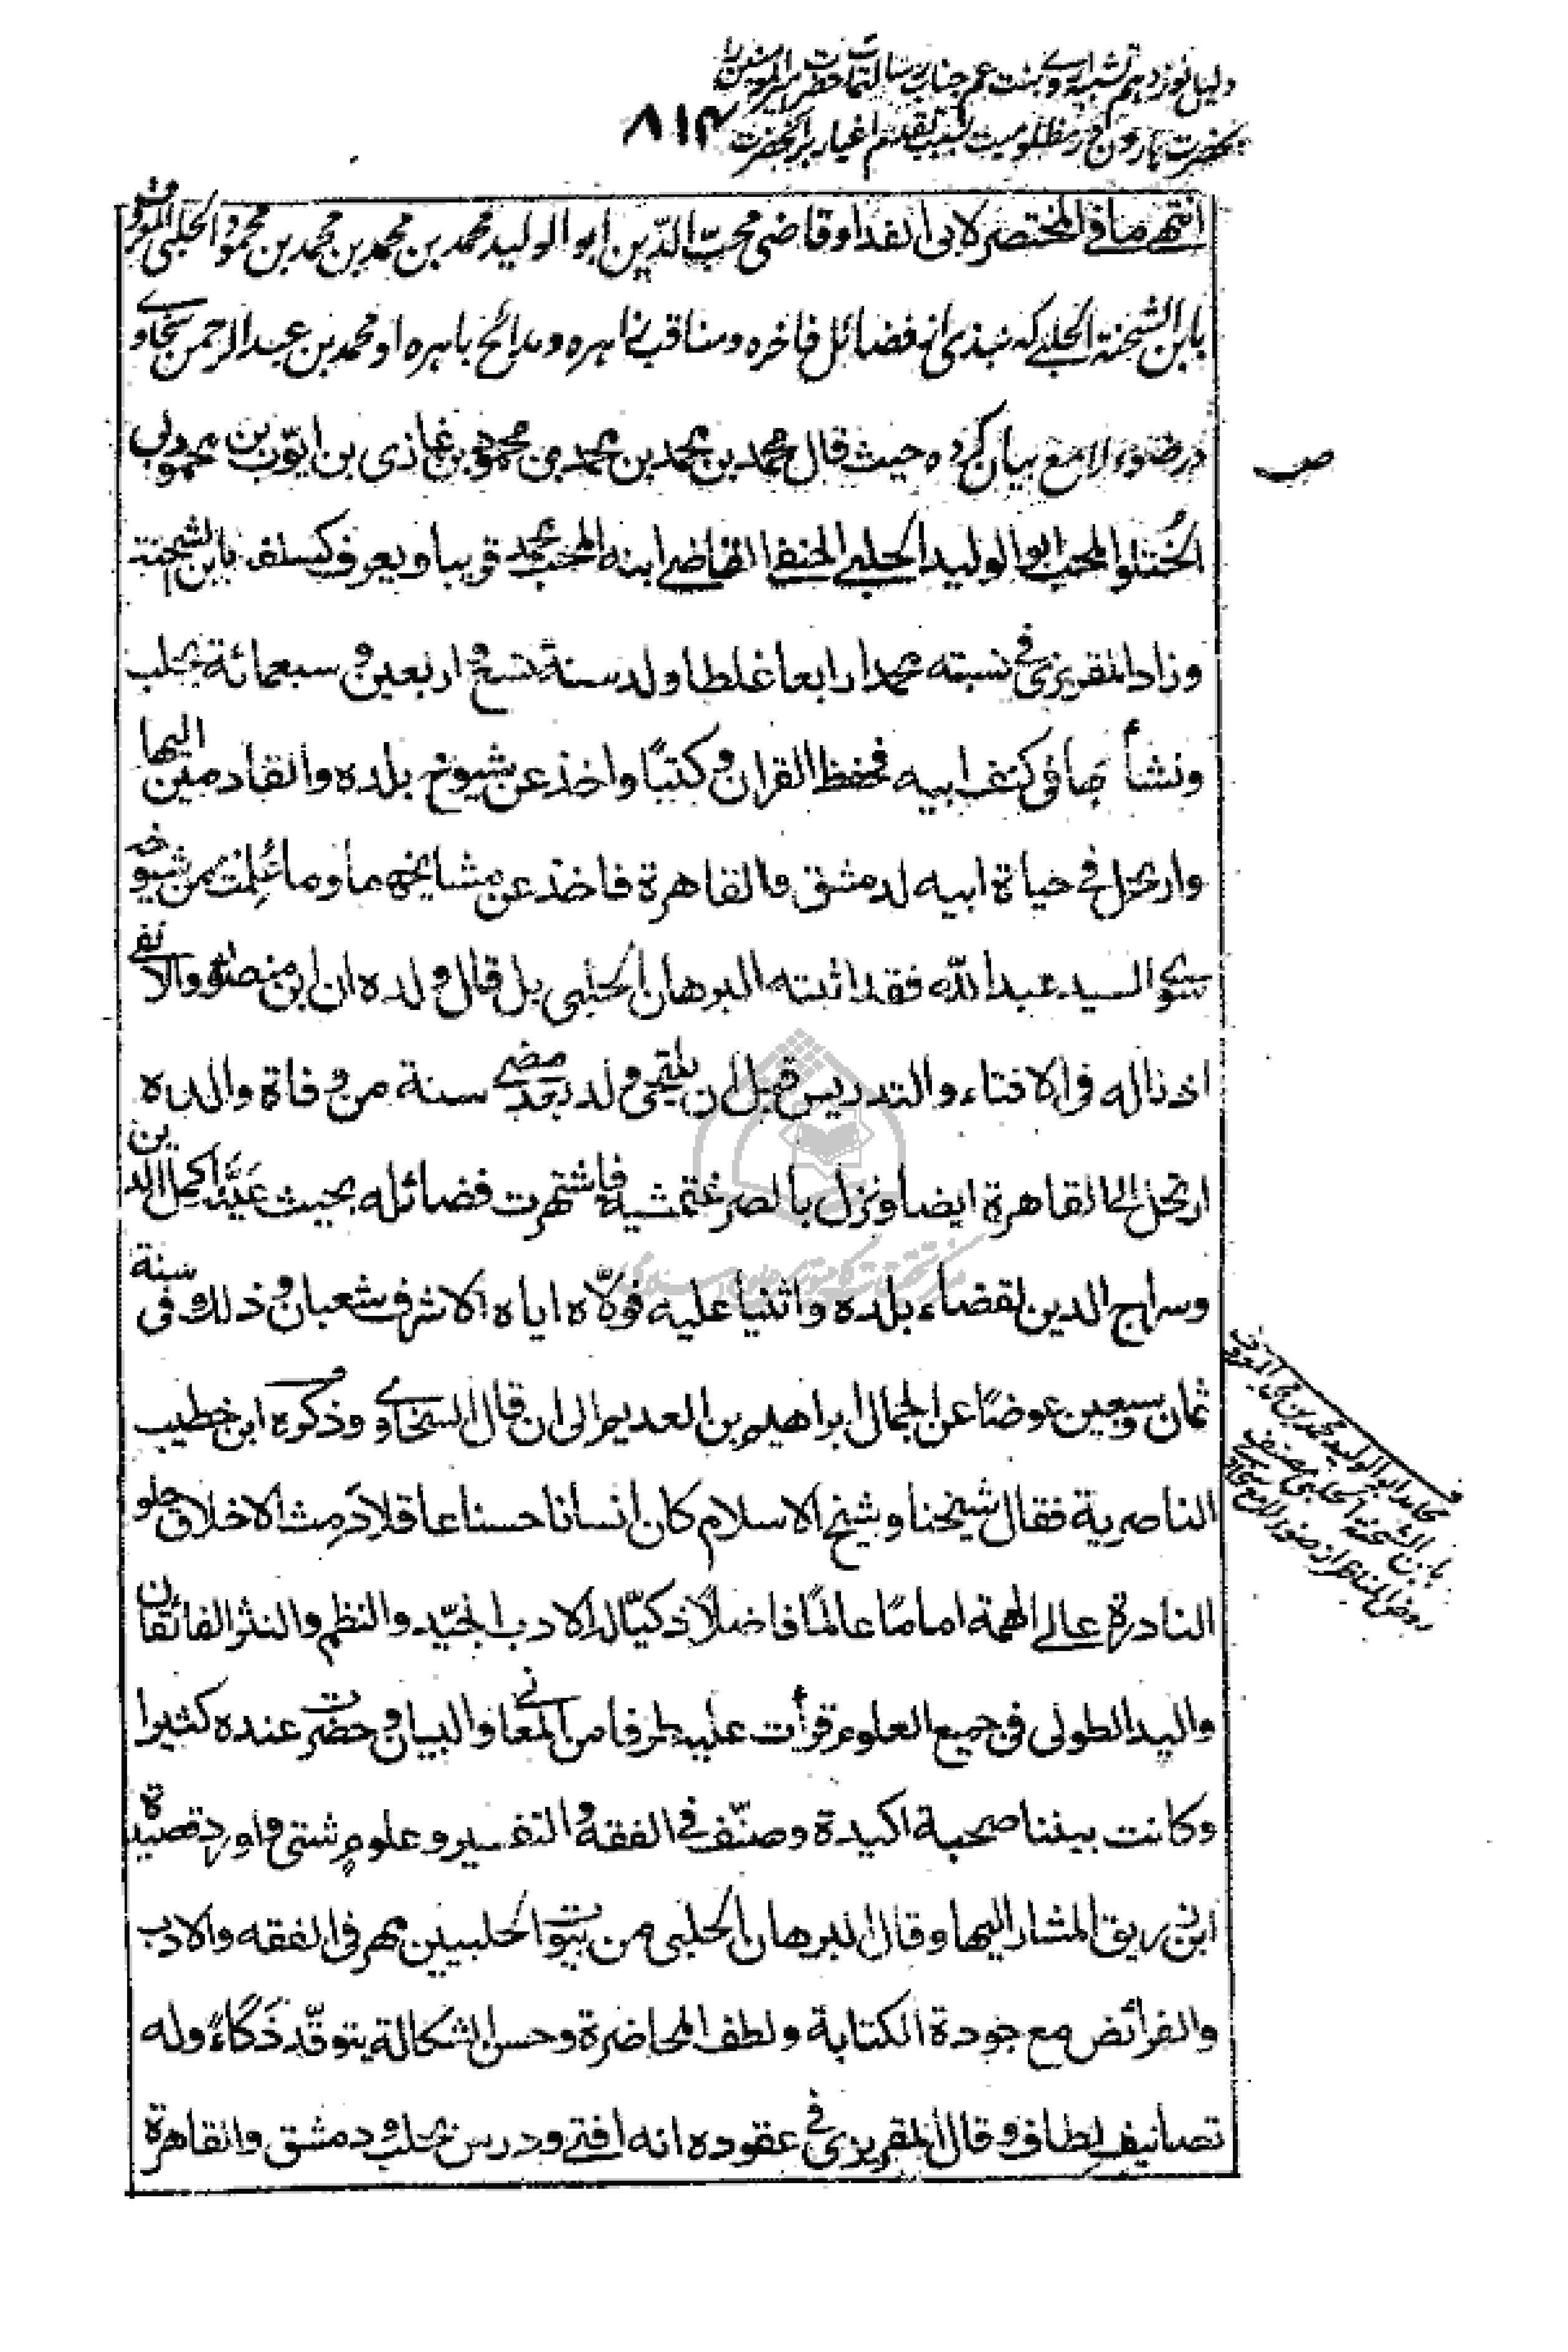 دلیل نوزدهم تشبیه اے و بنت عم جناب رسالتمآب حضرت امیر المومنین را
بحضرت هارون در مظلومیت بسبب تقدم اغیار بر آنحضرت
۸۱۳
انتهى ما فى المختصر لابى الفدا و قاضى محبّ الدّين ابو الوليد محمد بن محمد بن محمد بن محمود الحلبى المعروف
بابن الشحنة الحلبے که نبذى از فضائل فاخره و مناقب زاهره و مدائح باهره او محمد بن عبد الرحمن سخاوے
در ضوء لامع بیان کرده حيث قال محمد بن محمد بن محمد بن محمود بن غازى بن ايّوب بن محمود بن
الخُتلو المحب ابو الوليد الحلبى الحنفى القاضى ابنه المحب محمد قريبا و يعرف كسلفه بابن الشحنة
و زاد المقريزى فى نسبته محمدا رابعا غلطا ولد سنة تسع و اربعين و سبعمائة بحلب
و نشأ بها فى كنف ابيه فحفظ القران و كتبًا و اخذ عن شيوخ بلده و القادمين اليها
و ارتحل فى حياة ابيه لدمشق و القاهرة فاخذ عن مشايخهما و ما عَلِمت من شيوخه
سوى السيد عبد اللّه فقد اثبته البرهان الحلبى بل قال ولده ان ابن منصور و الانفى
اذنا له فى الافتاء و التدريس قبل ان يلتحى ولد بعد مضى سنة من وفاة والده
ارتحل الى القاهرة ايضا و نزل بالصرغتمشية فاشتهرت فضائله بحيث عَيَّنه اكمل الدين
و سراج الدين لقضاء بلده و اثنيا عليه فولاّه اياه الاشرف شعبان و ذلك فى سنة
ثمان و سبعين عوضًا عن الجمال ابراهيم بن العديم الى ان قال السخاوے و ذكره ابن خطيب
الناصرية فقال شيخنا و شيخ الاسلام كان انسانا حسنا عاقلا دَمِث الاخلاق حلو
النادرة عالى الهمة امامًا عالمًا فاضلًا ذكيّا له الادب الجيّد و النظم و النثر الفائقان
و اليد الطولى فى جميع العلوم قرأت عليه طرفا من المعانے و البيان و حضرت عنده كثيرا
و كانت بيننا صحبة اكيدة و صنّف فى الفقه و التفسير و علومٍ شتى و اورد قصيدة
ابن زريق المشار اليها و قال البرهان الحلبى من بيوت الحلبيين مهر فى الفقه و الادب
و الفرائض مع جودة الكتابة و لطف المحاضرة و حسن الشكالة يتوقّد ذَكاءً و له
تصانيف لطاف و قال المقريزى فى عقوده انه افتى و درس بحلب و دمشق و القاهرة
صـ
محامد ابو الوليد محمد بن محمد المعروف
بابن الشحنة الحلبى مصنف
روض المناظر از ضوء لامع سخاوى